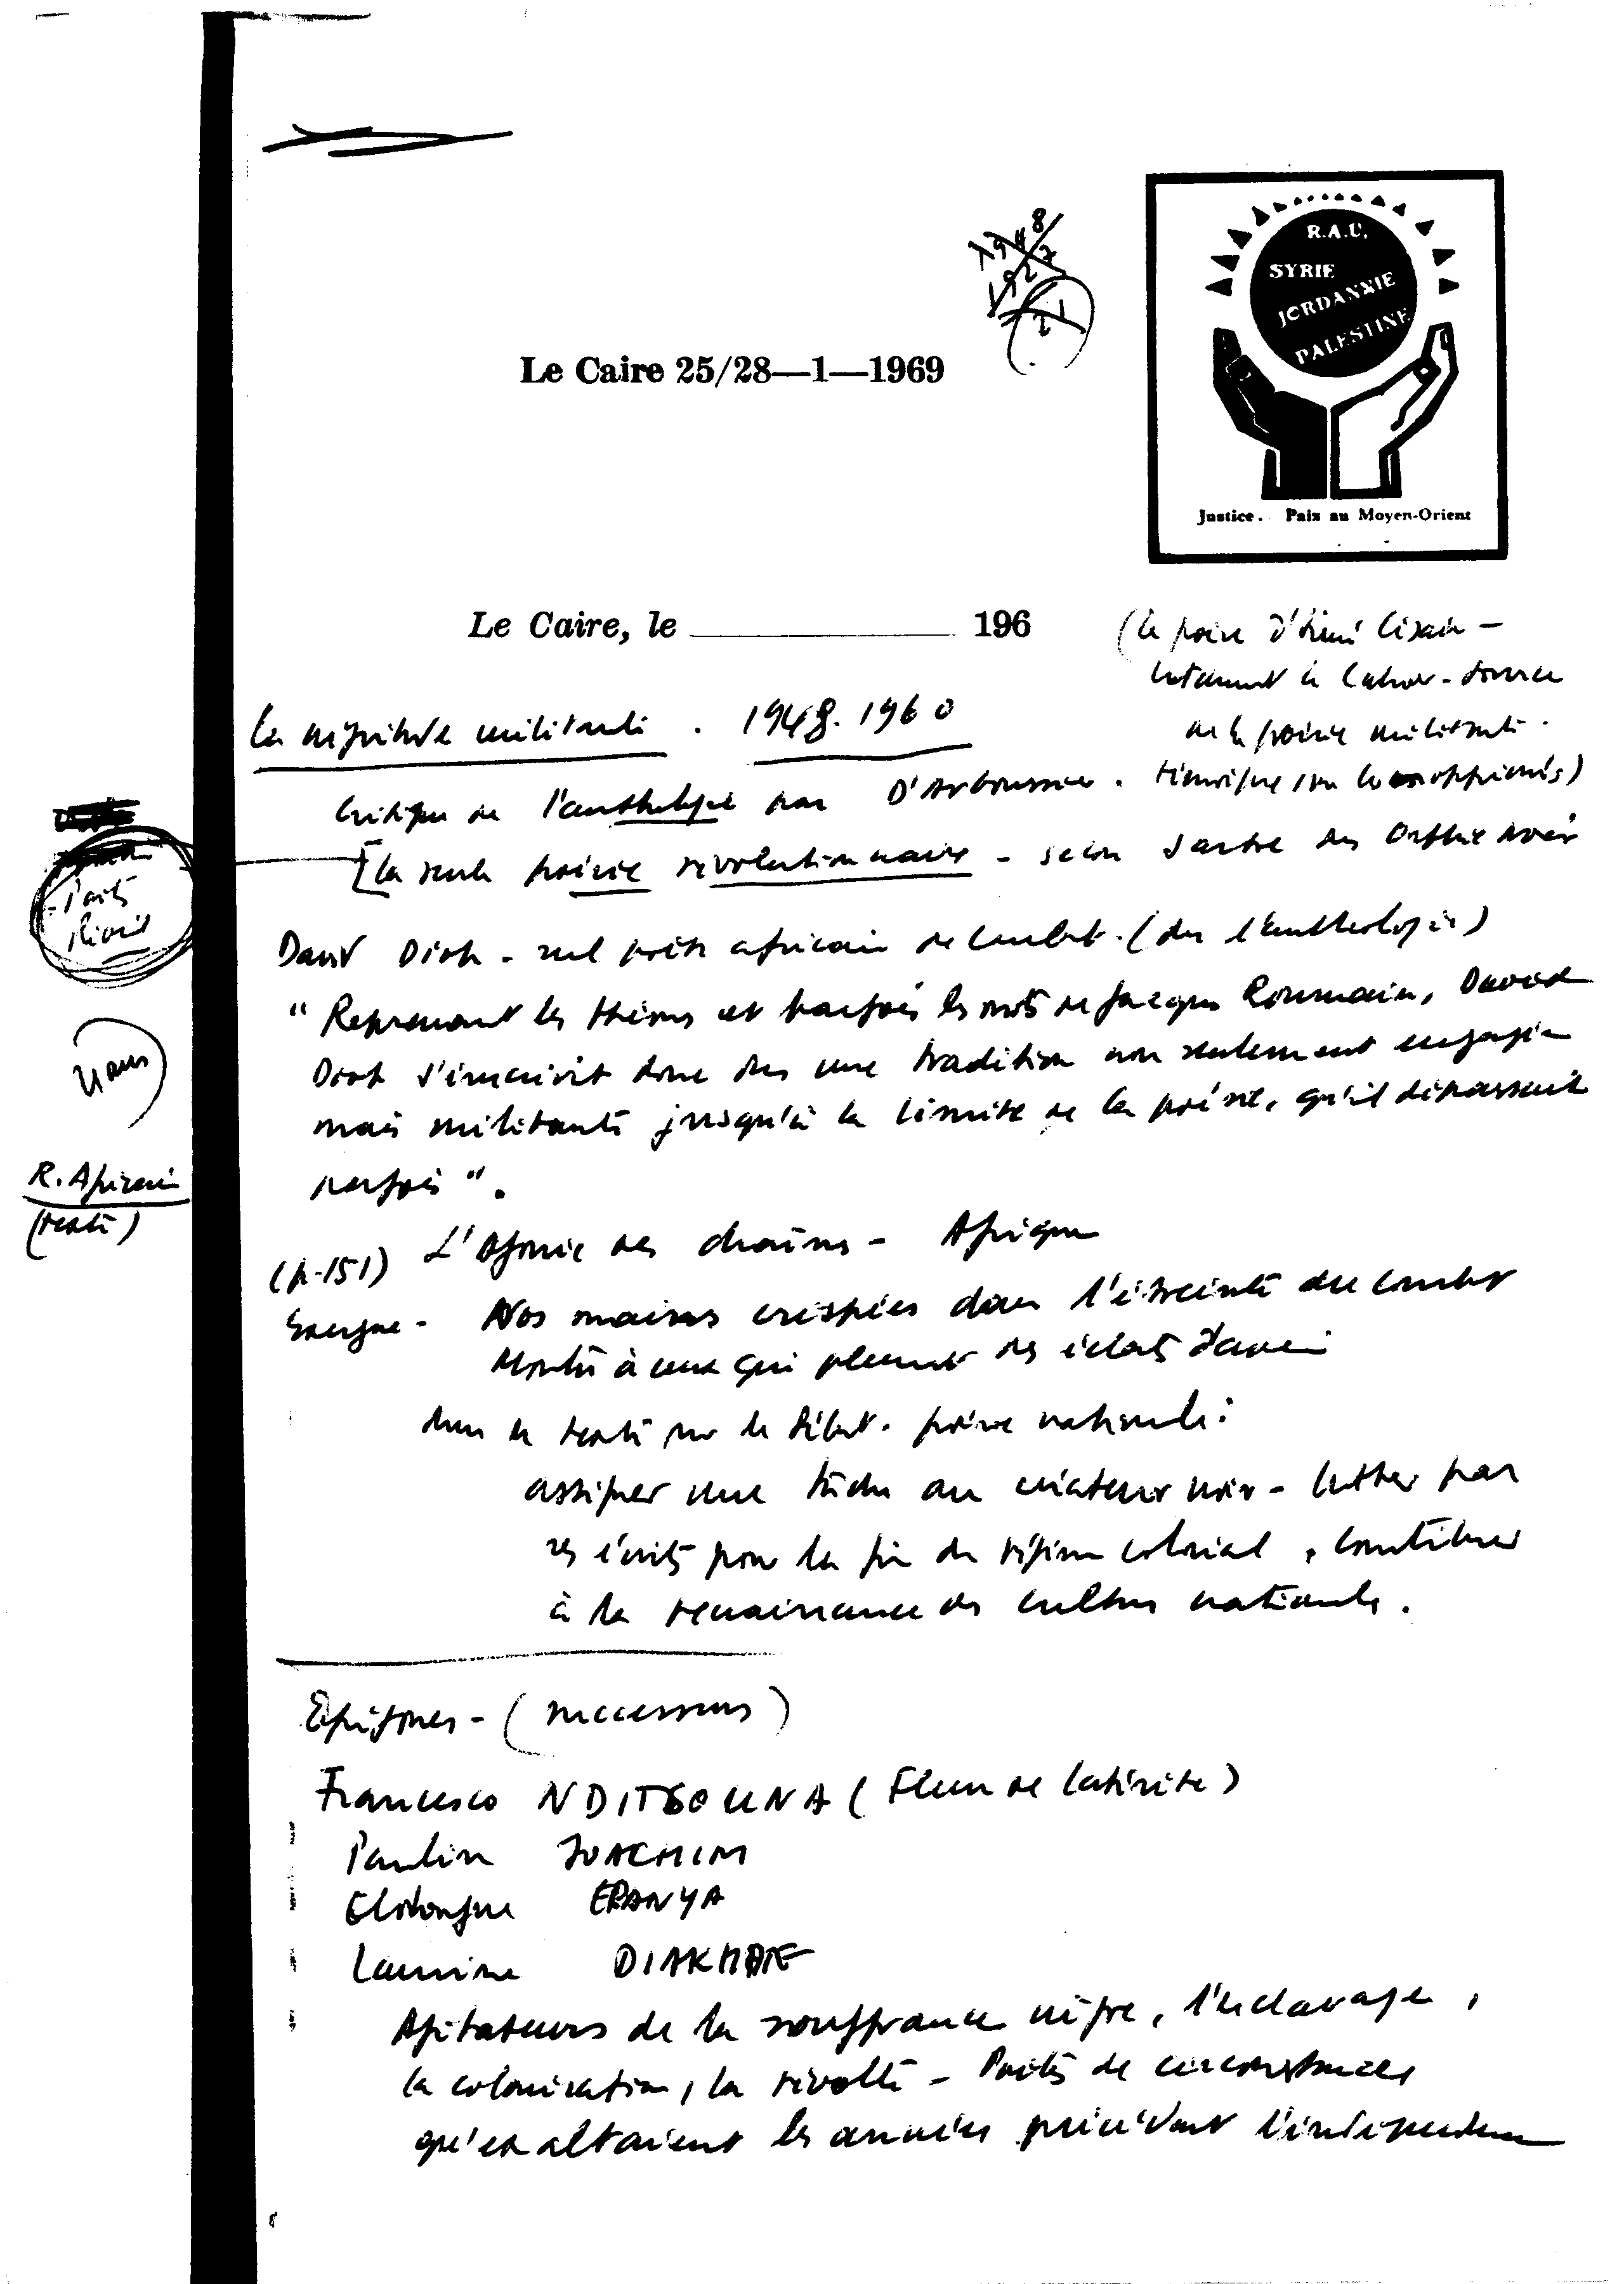 1948
1927
21
R.A.U.
SYRIE
JORDANNIE
PALESTINE
Justice. Paix au Moyen-Orient
Le Caire 25/28—1—1969
Le Caire, le 196
(la poésie d'Aimé Césaire -
notamment le Cahier - source
de la poésie militante.
La négritude militante. 1948. 1960
Critique de l'anthologie par D'Arboussier. sur les opprimés)
[la seule poésie révolutionnaire - selon Sartre ds Orphée noir
Poètes
David Diop - seul poète africain de combat. (ds l'anthologie)
"Reprenant les thèmes et parfois les mots de Jacques Roumain, David
Diop s'inscrivit donc ds une tradition non seulement engagée
mais militante jusqu'à la limite de la poésie, qu'il dépassait
parfois".
R. Africain
(texte)
(p. 151) L'Agonie des chaînes - Afrique
Nos mains crispées dans l'étreinte du combat
Montre à ceux qui pleurent des éclats d'avenir
dans le texte sur le débat. poésie nationale:
assigner une tâche au créateur noir - lutter par
ses écrits pour la fin du régime colonial, contribuer
à la renaissance des cultures nationales.
Epigones - (successeurs)
Francesco NDITSOUNA (Fleur de Latérite)
Paulin JOACHIM
Elolongue EPANYA
Lamine DIAKHATE
Agitateurs de la souffrance nègre, l'esclavage,
la colonisation, la révolte - Poètes de circonstances
qu'exaltaient les années précédant l'indépendance